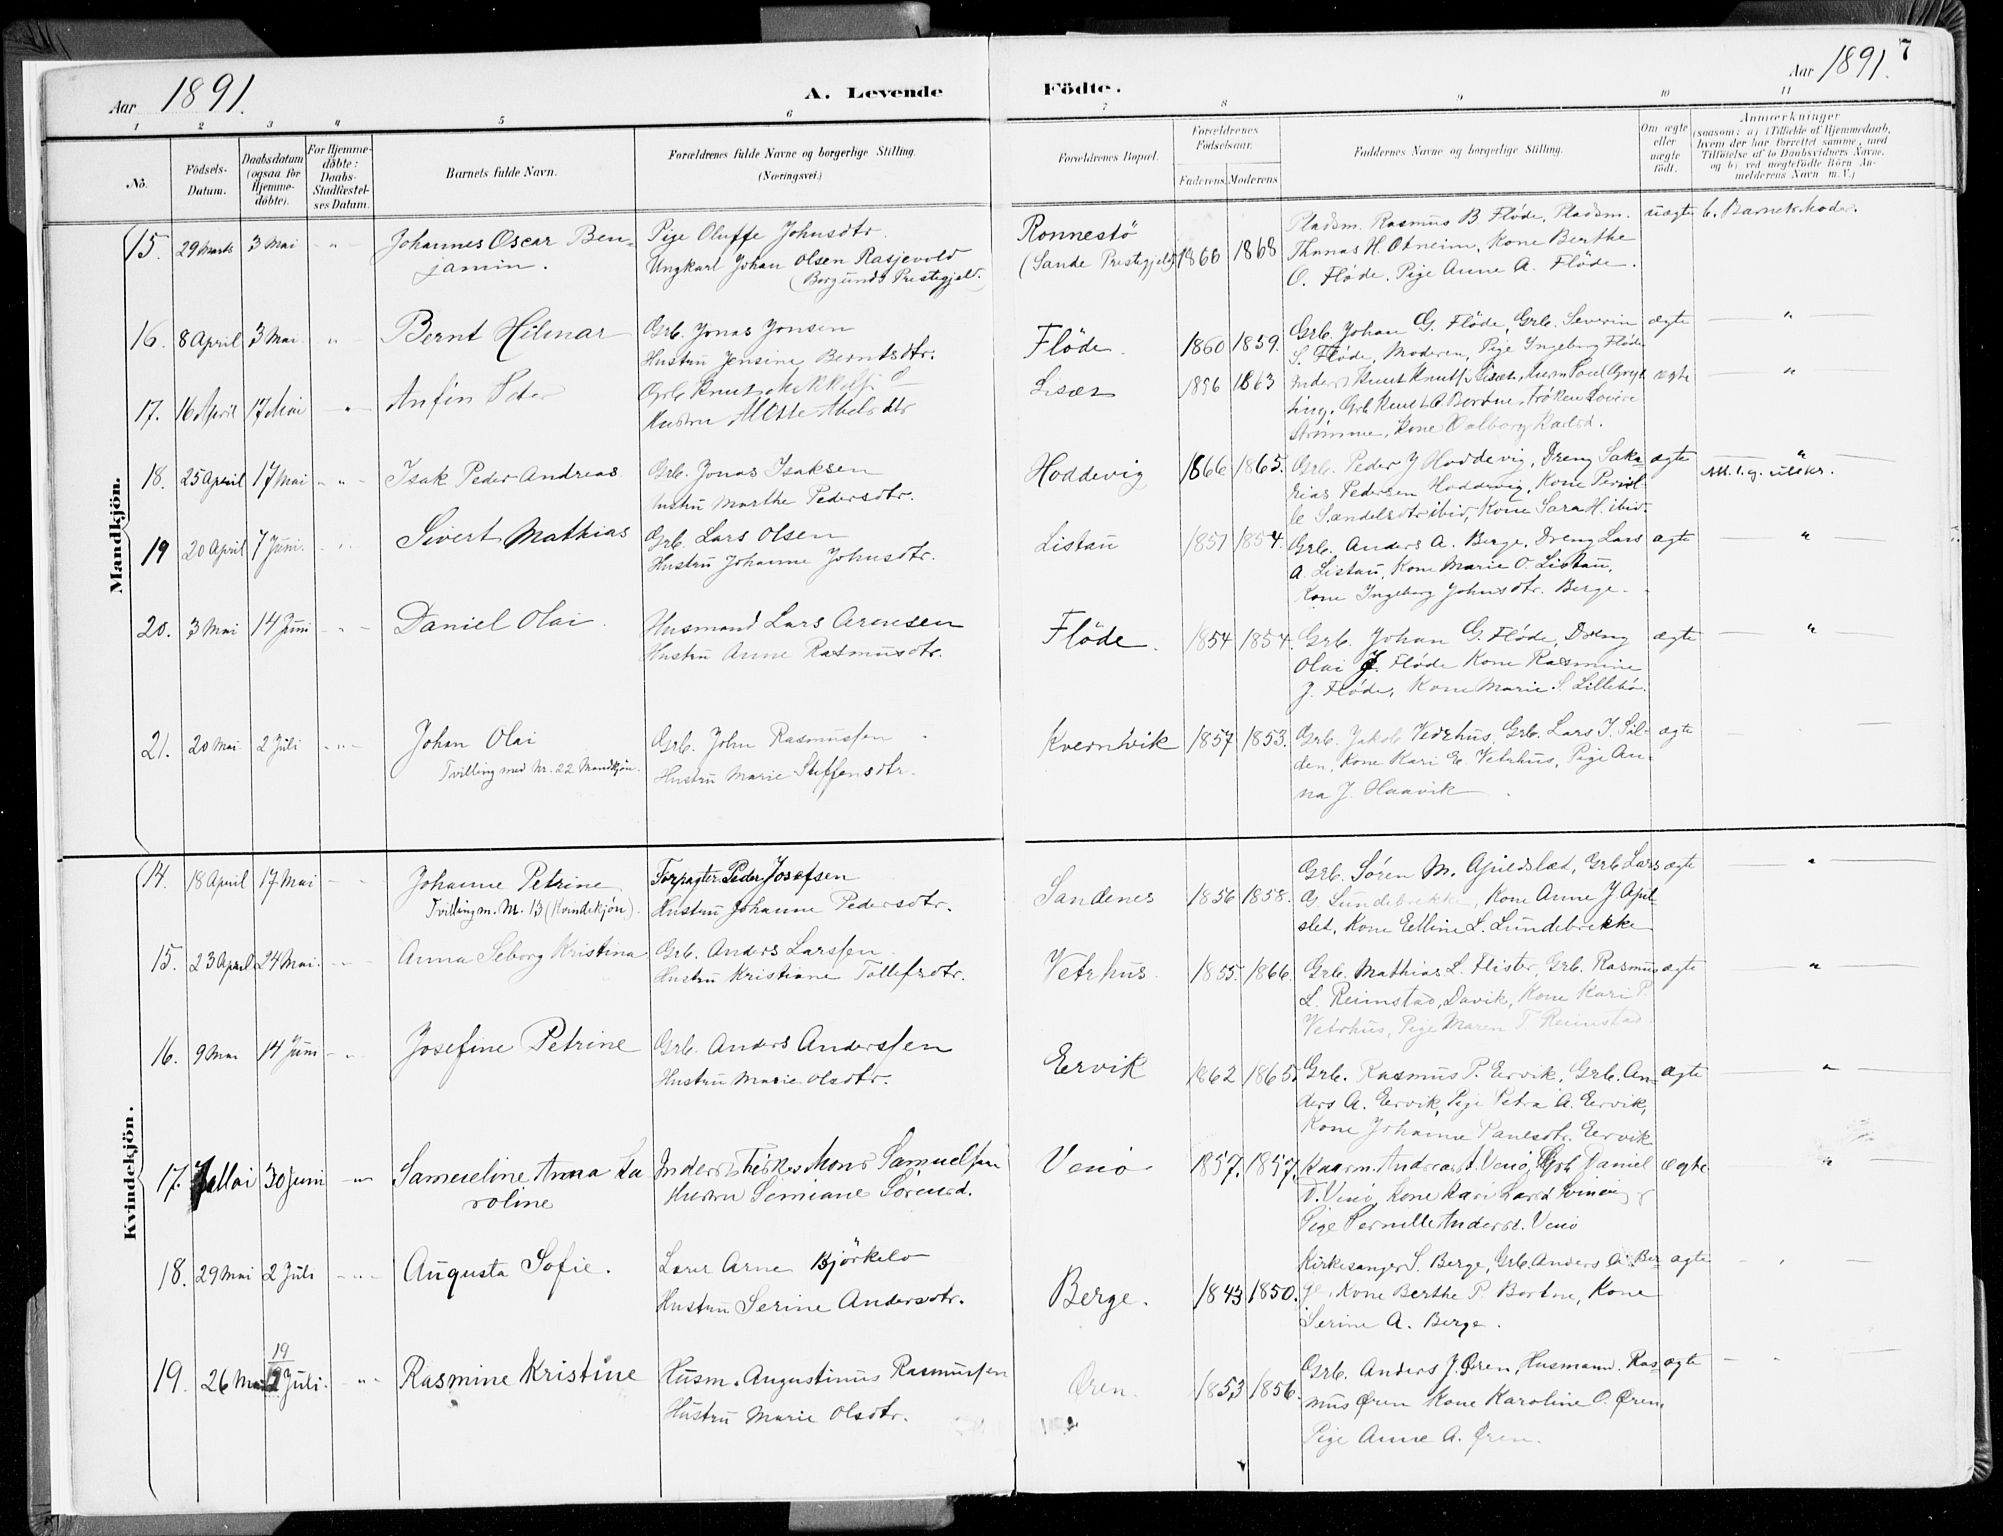 Aar 1891. A. Levende Fødte. Aar 1891. 7
1 2 3 4 5 6 7 8 9 10 11
No. Fødsels-Datum. Daabsdatum (ogsaa for Hjemme-døbte). For Hjemme-døbte: Daabs-Stadfæstel-ses Datum. Barnets fulde Navn. Forældrenes fulde Navne og borgerlige Stilling. (Næringsvei.) Forældrenes Bopæl. Forældrenes Fødselsaar. Faderens. Moderens. Faddernes Navne og borgerlige Stilling. Om ægte eller uægte født. Anmærkninger (saasom: a) i Tilfælde af Hjemmedaab, hvem der har forrettet samme, med Tilføielse af to Daabsvidners Navne, og b) ved uægtefødte Børn Anmelderens Navn m. V.)
Mandkjön.
15. 29 Marts 3 Mai - " - Johannes Oscar Ben- Pige Oluffe Johnsdtr. Ronnestö 1866 1868 Pladsm. Rasmus B Flöde, Pladsm. uægte b. Barnets Moder.
jamin. Ungkarl Johan Olsen Rasjevold (Sande Prestegjeld) Thomas H. Otneim, Kone Berthe
(Borgunds Prestegjeld) O. Flöde, Pige Anne A. Flöde.
16. 8 April 3 Mai " Bernt Hilmar Grb. Jonas Jonsen Flöde. 1860 1859. Grb. Johan G. Flöde, Grb. Severin ægte "
Hustru Jensine Berntsdtr. S. Flöde, Moderen, Pige Ingeborg Flöde
17. 16 April 17 Mai " Anfin Grb Knut Lisæt 1863 ægte "
Hustru Abelsdtr Grb Knut Bortne, Fröken
Kone Valborg
18. 25 April 17 Mai - " - Isak Peder Andreas Grb. Jonas Isaksen Hoddevig 1866 1865. Grb. Peder J Hoddevig, Dreng Saka- ægte "
Hustru Marthe Pedersdtr. rias Pedersen Hoddevig, Kone Pernil-
le Sandelsdtr ibid, Kone Sara H. ibid.
19 20 April 7 Juni. " Sivert Mathias Grb. Lars Olsen Listau 1851 1854. Grb. Anders A. Berge, Dreng Lars ægte "
Hustru Johanne Johnsdtr. A. Listau, Kone Marie O. Listau,
Kone Ingeborg Johnsdtr. Berge.
20. 3 Mai 14 Juni - " - Daniel Olai. Husmand Lars Arensen Flöde. 1854 1854. Grb. Johan G. Flöde, Dreng ægte "
Hustru Anne Rasmusdtr. Olai J. Flöde Kone Rasmine
J. Flöde, Kone Marie S. Lillebö.
21. 20 Mai 2 Juli - " - Johan Olai Grb. John Rasmussen Kvernhvik 1857 1853. Grb. Jakob Vetrhus, Grb. Lars J. Sil- ægte
Tvilling med Nr. 22 Mandkjön. Hustru Marie Steffensdtr. den, Kone Kari E. Vetrhus, Pige An-
na J. Haavik
Kvindekjön.
14. 18 April 17 Mai - - Johanne Petrine Forpagter Peder Josefsen Sandenes 1856 1858. Grb. Sören M. Apildslad, Grb Lars ægte "
Tvilling m. Nr. 13 (Kvindekjön). Hustru Johanne Pedersdtr. G. Lundebrekke, Kone Anne J Apil-
slet, Kone Elline L. Lundebrekke
15. 23 April 24 Mai. - - Anna Seborg Kristina Grb. Anders Larssen Vetrhus. 1855. 1866. Grb. Mathias L. Flister, Grb. Rasmus ægte "
Hustru Kristiane Tollefsdtr. L. Reimstad, Davik, Kone Kari P.
Vetrhus, Pige Maren T. Reimstad.
16. 9 Mai 14 Juni - " - Josefine Petrine Grb. Anders Anderssen Ervik 1862 1865. Grb. Rasmus P. Ervik, Grb. An- ægte "
Hustru Marie Olsdtr. ders A. Ervik, Pige Petra A. Ervik,
Kone Johanne Paulsdtr. Ervik
17. Mai 30 Juni " Samueline Anna Ka Inderst Fisker Mons Samuelsen Venö 1857. 1857. Andreas A. Venö, Grb Daniel ægte "
roline Hustru Simiane Sörensd. D. Venö, Kone Kari Larsd
Pige Pernille Andersd. Venö
18. 29 Mai 2 Juli - " - Augusta Sofie. Lærer Arne Björkelo Berge. 1843 1850. Kirkesanger S. Berge, Grb. Anders A. Ber- ægte "
Hustru Serine Andersdtr. ge, Kone Berthe P. Bortne, Kone
Serine A. Berge.
19. 26 Mai 19 / 12 Juli. - " - Rasmine Kristine Husm. Augustinus Rasmussen Ören. 1853 1856. Grb. Anders J. Ören, Husmand. Ras- ægte "
Hustru Marie Olsdtr. mus Ören Kone Karoline O. Ören,
Pige Anne A. Ören.